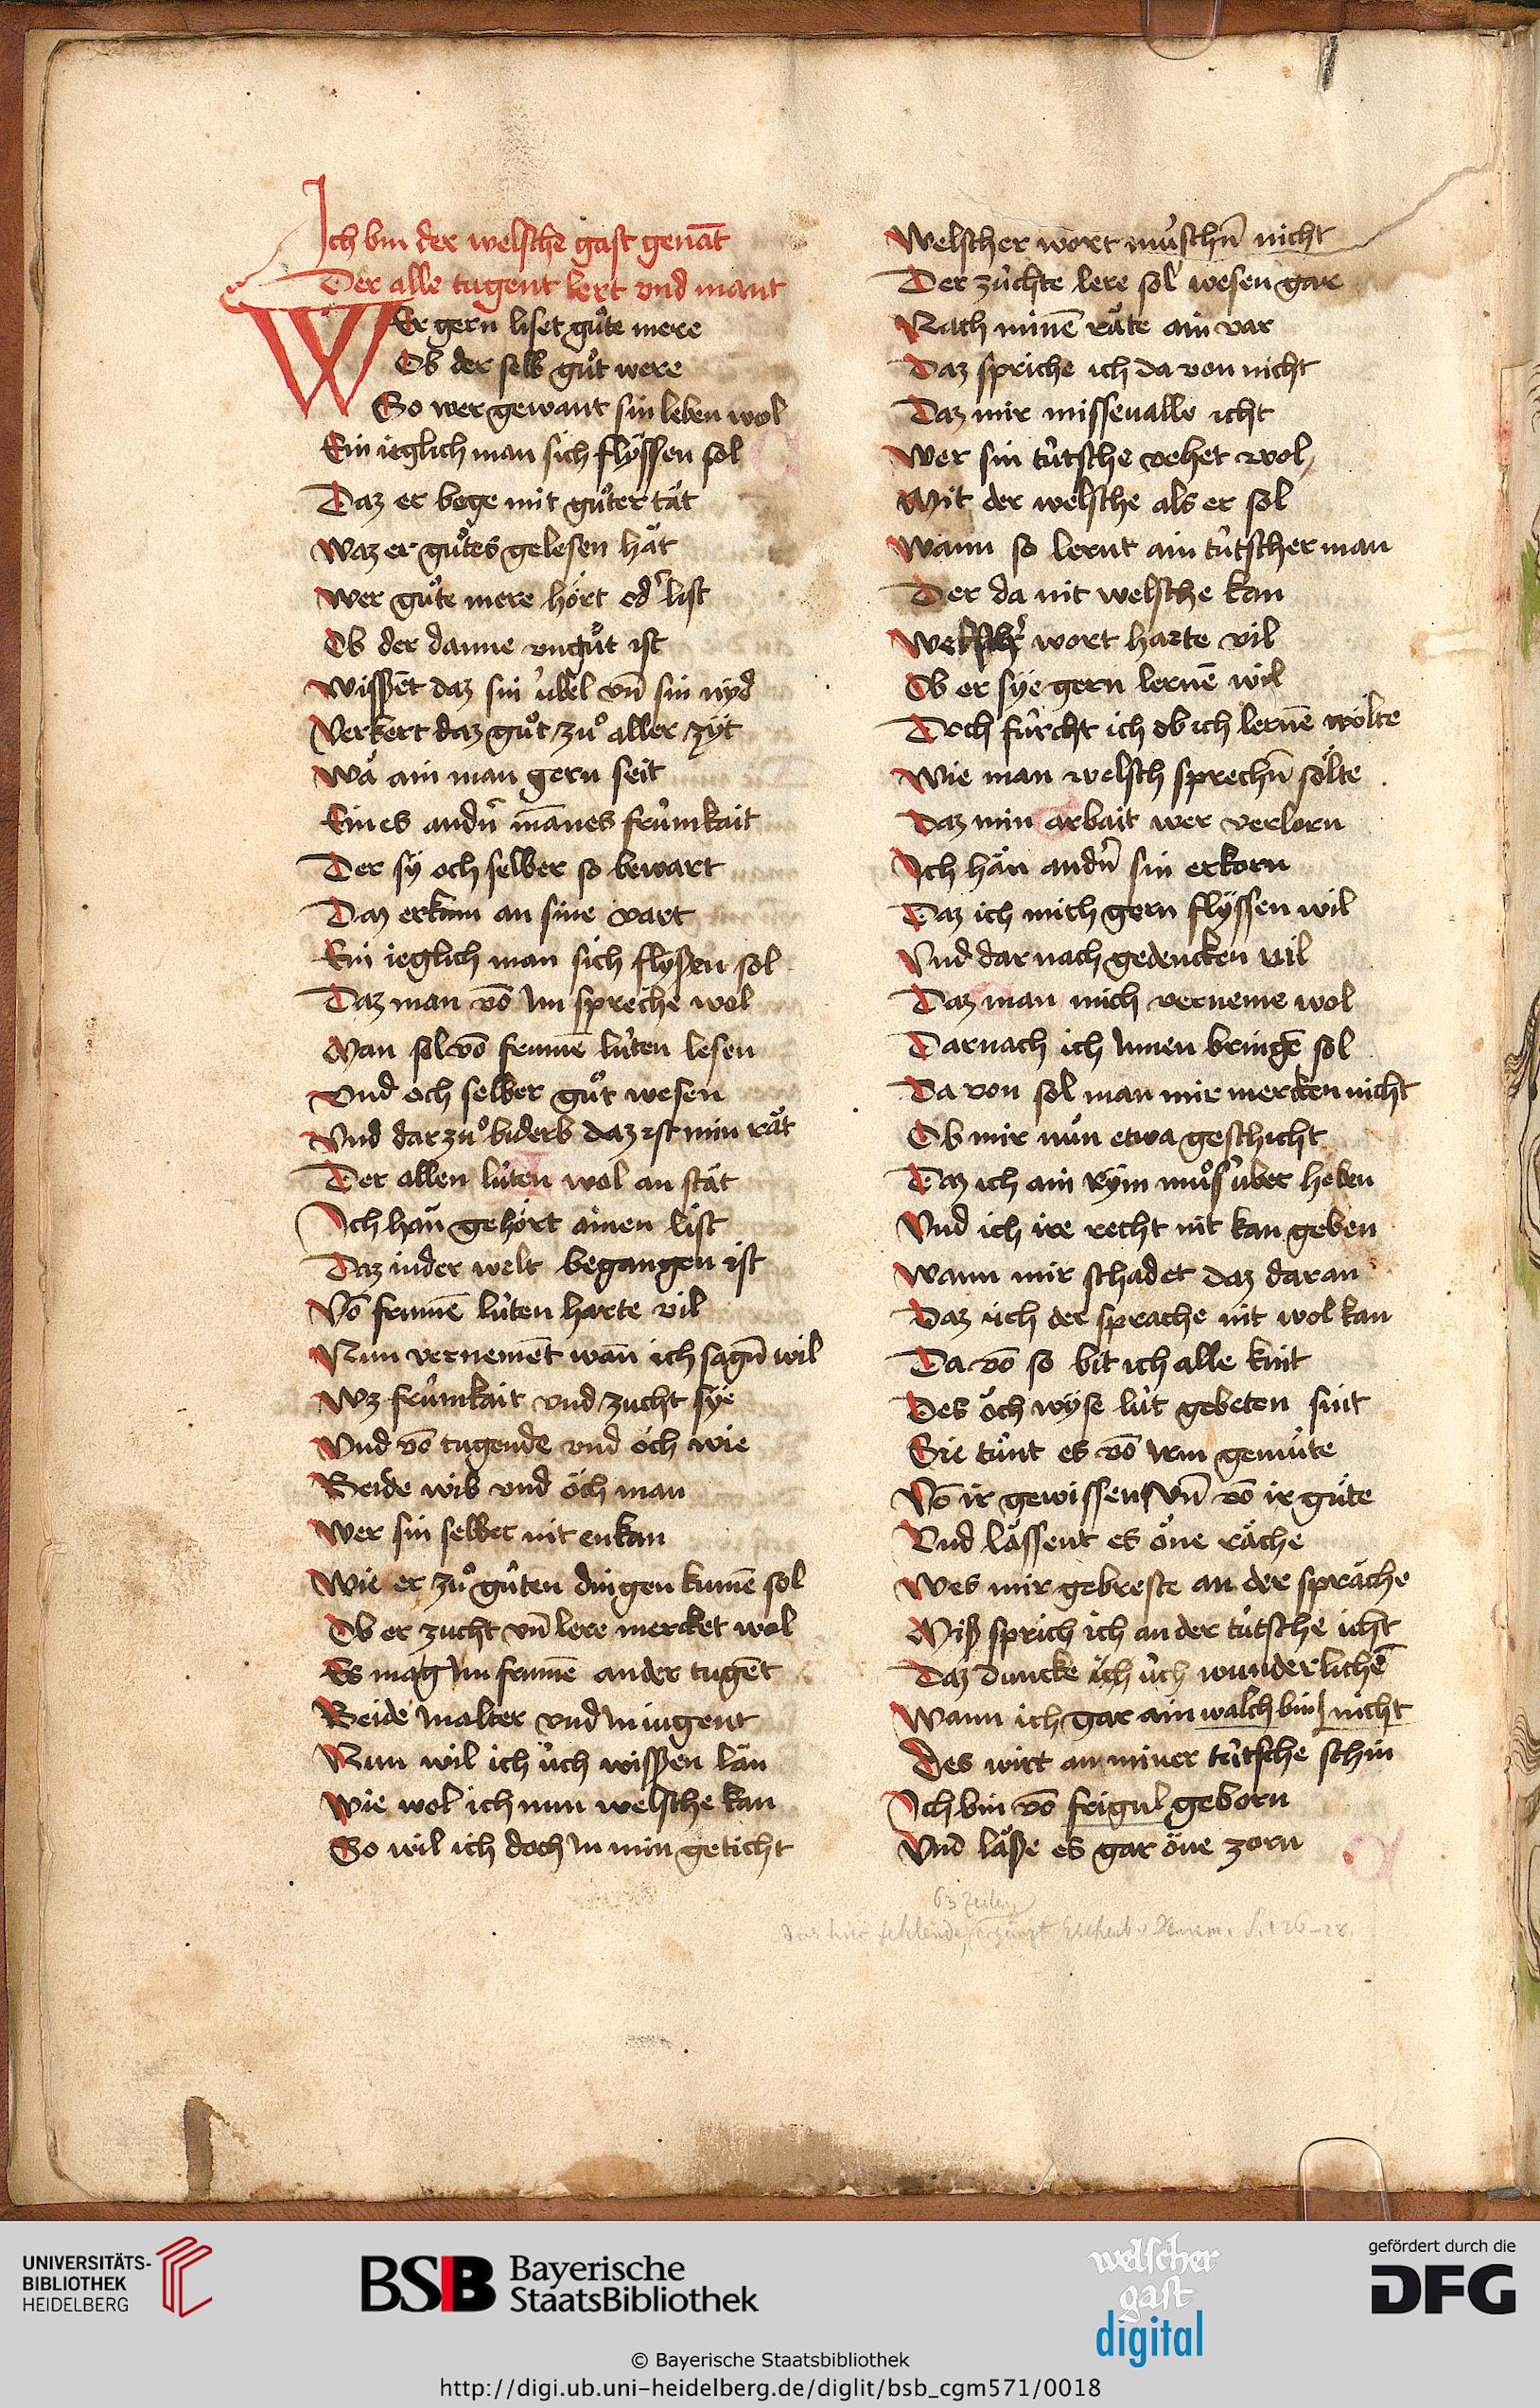 Ich bin der welsche gast genāt
Der alle tugent lert vnd mant
WEr gern liset gůte mere
Ob der selb gůt were
So wer gewant sin leben wol
Ein ieglich man sich flÿssen sol
Daz er boge mit gůter tät
Waz er gůtes gelesen hät
Wer gůte mere hört od͛ list
Ob der danne vngůt ist
Wissēt daz sin übel vn̄ sin nÿd
Verkert daz gůt zů aller zÿt
Wä ain man gern seit
Eines andn͛ mānes frümkait
Der sÿ och selber so bewart
Daz er kam an sine vart
Ein ieglich man sich flÿßen sol
Daz man vō Im spreche wol
Man sol vō frumē lüten lesen
Vnd och selber gůt wesen
Vnd dar zů biderb daz ist min rät
Der allen lüten wol an stät
Ich hän gehört ainen list
Daz in der welt begangen ist
Vō frumē lüten harte vil
Nun vernemēt wan̄ ich sagn̄ wil
Wz frümkait vnd zucht sÿe
Vnd vō tugende vnd öch wie
Beide wib vnd öch man
Wer sin selber nit enkan
Wie er zů gůten dingen kumē sol
Ob er zucht vn̄ lere mercket wol
Es mag Im frumē ander tugēt
Beide In alter vnd In iugent
Nun wil ich üch wissen län
Wie wol ich nun welsche kan
So wil ich doch In min geticht
Welscher wort müschn̄ nicht
Der züchte lere sol wesen gar
Nach minē räte ain var
Daz spriche ich da von nicht
Daz mir misseualle icht
Wer sin tütsche vehet wol
Mit der welsche als er sol
Wann so lernt ain tütscher man
Der da nit welsche kan
Welsch͛ wort harte vil
Ob er sÿe gern lernē wil
Doch fürcht ich ob ich lernē wölte
Wie man welsch sprechn̄ sölte
Daz min arbait wer verlorn
Ich hän andn͛ sin erkorn
Daz ich mich gern flÿssen wil
Vnd dar nach gedencken vil
Daz man mich verneme wol
Darnach ich Innen bringē sol
Da von sol man mir mercken nicht
Ob mir nůn etwa geschicht
Daz ich ain rÿm můs über heben
Vnd ich ire recht nit kan geben
Wann mir schadet daz daran
Daz ich der sprache nit wol kan
Da vō so bit ich alle kint
Des öch wÿse lüt gebeten sint
Sie tünt es vō irm gemüte
Vō ir gewissen vn̄ vō ir güte
Vnd lässent es öne räche
Wes mir gebreste an der spräche
Miß sprich ich an der tütsche icht
Daz duncke ich üch wunderlichē
Wann ich gar ain walch bin nicht
Des wirt an miner tütsche schin
Ich bin vō frigul geborn
Vnd läße es gar öne zorn
63 Zeilen
das hier fehlende, ergänzt Eschenb. Denkm. S. 126-28.
UNIVERSITÄTS-
BIBLIOTHEK
HEIDELBERG
BSB Bayerische
StaatsBibliothek
welscher
gast
digital
gefördert durch die
DFG
© Bayerische Staatsbibliothek
http://digi.ub.uni-heidelberg.de/diglit/bsb_cgm571/0018